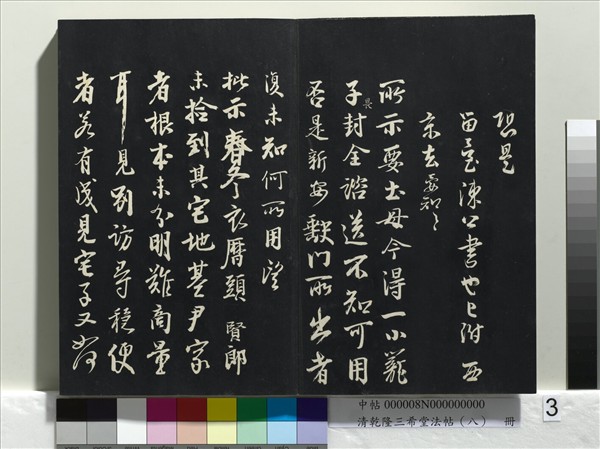 恐是
留臺陳公書也已附西
京去要知之
所示要土母今得一小籠
子封全諮送不知可用
否是新安缺門所出者
復未知何所用望
批示春冬衣曆頭賢郎
未拾到其宅地基尹家
者根本未分明難商量
耳見別訪尋穩便
者若有成見宅子又如何
中帖 000008N000000000
清乾隆三希堂法帖(八) 冊
3